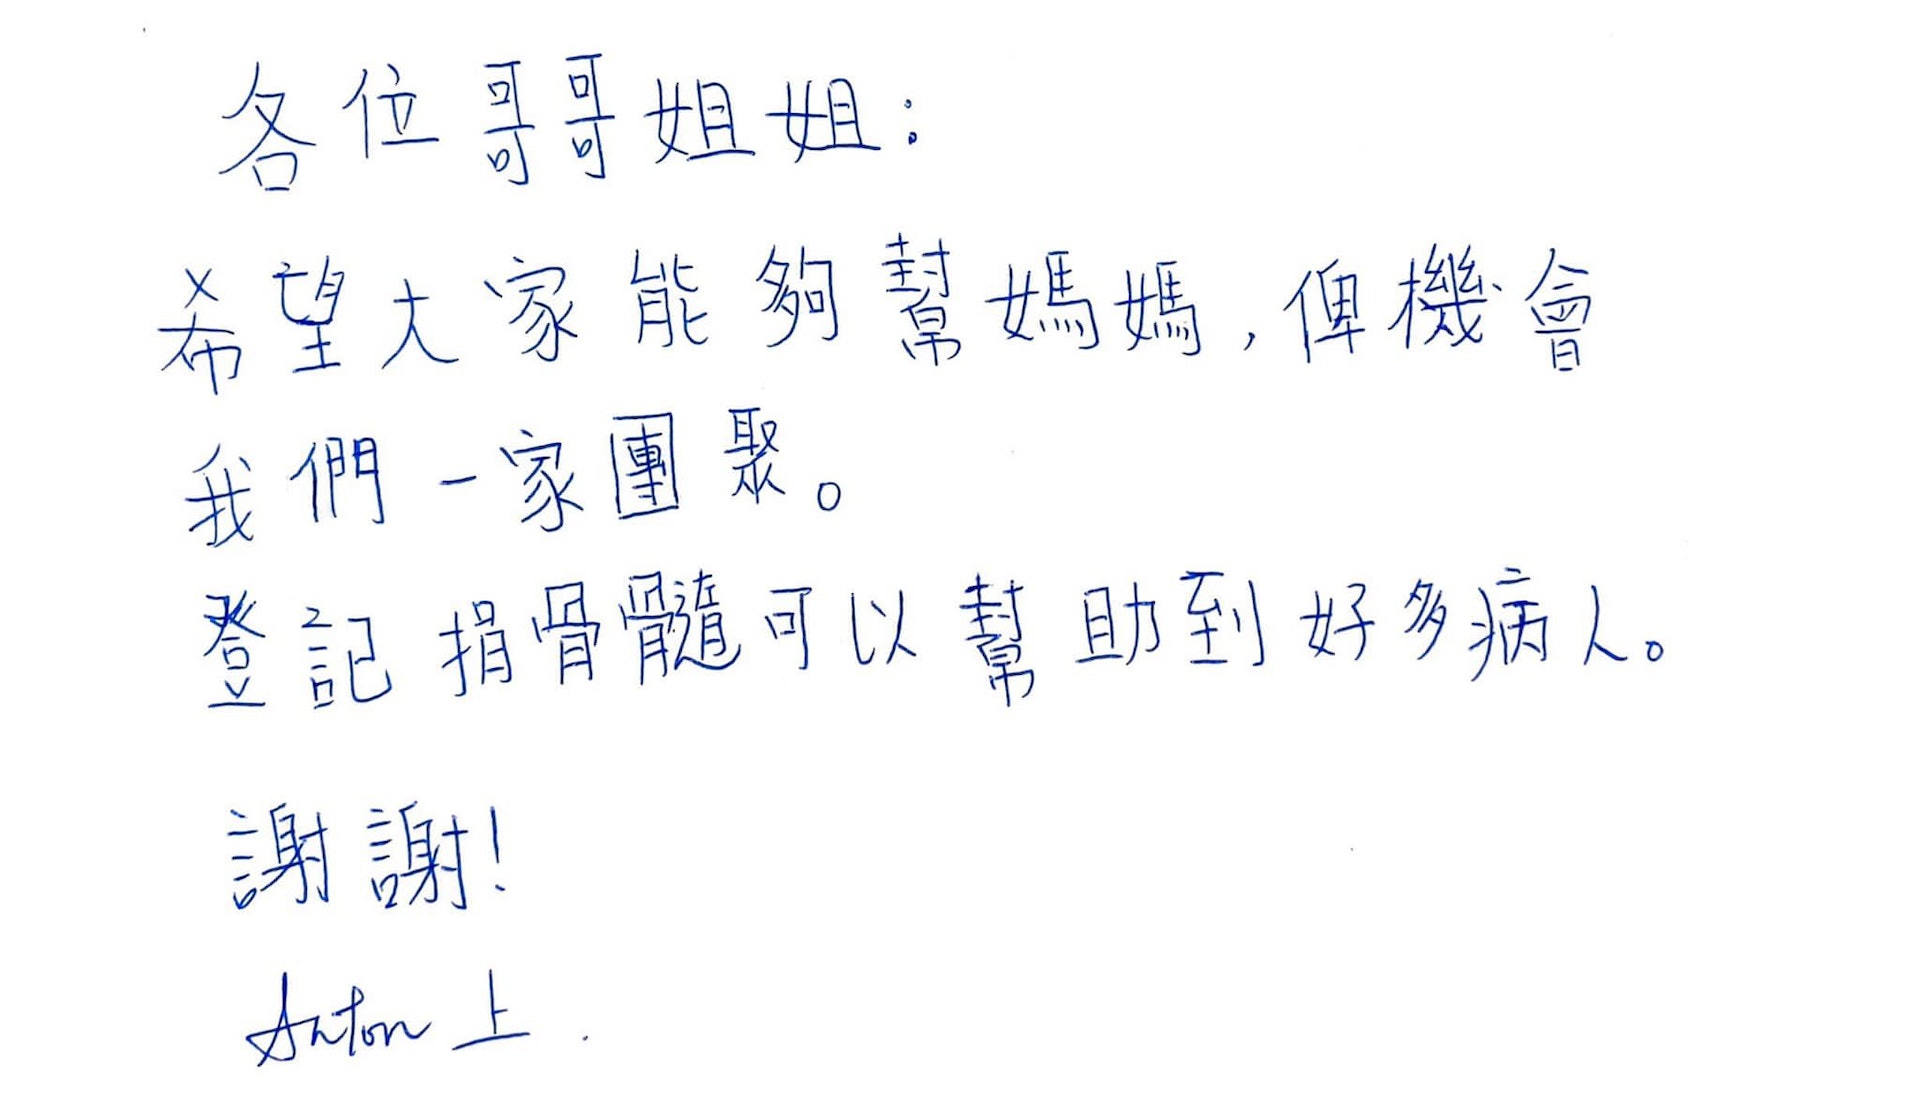 各位哥哥姐姐:
希望大家能夠幫媽媽,俾機會
我們一家團聚。
登記捐骨髓可以幫助到好多病人。
謝謝!
Anton 上.